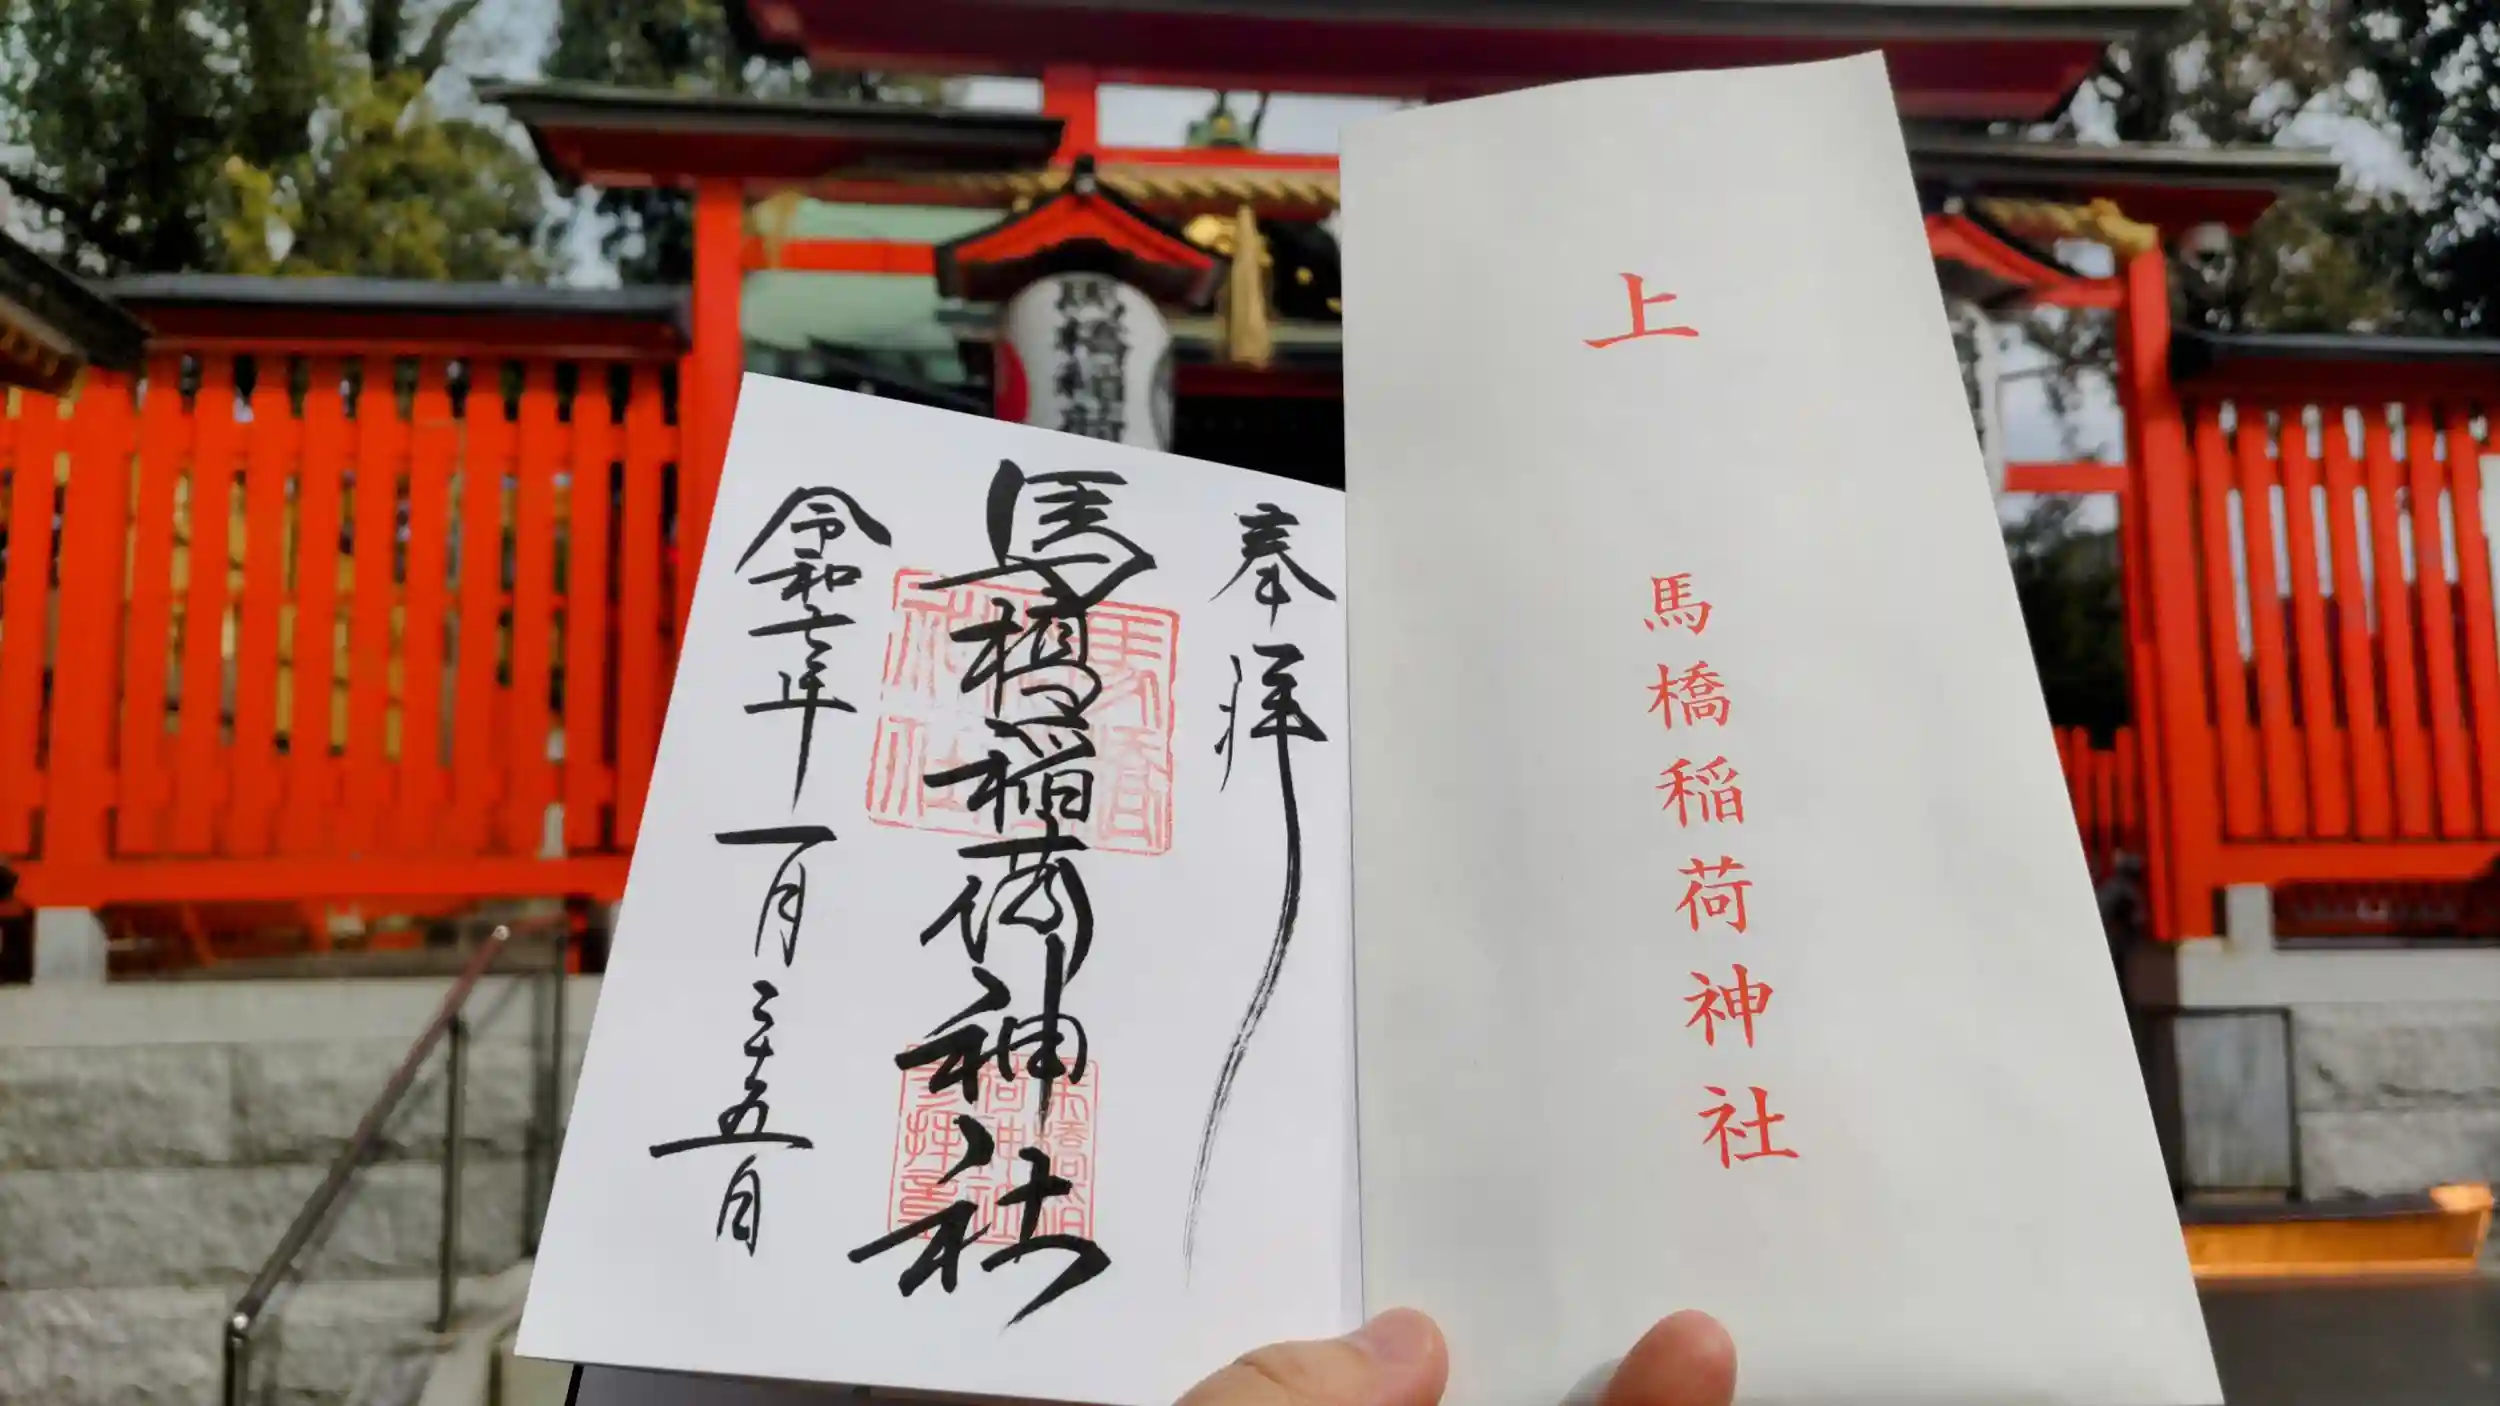 馬橋稲荷
上
馬橋稲荷神社
奉拝
馬橋稲荷神社
令和七年一月二十五日